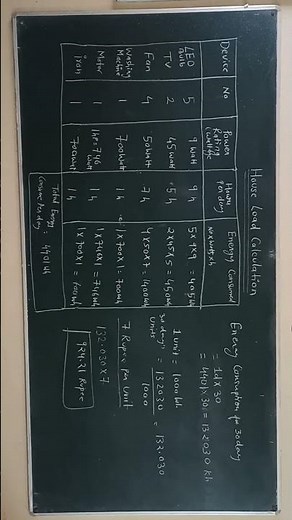 House Load Calculation
Device No Power Rating (watt) Hours per day Energy Consumed
N x watts x h
LED Bulb 5 9 watt 9 h 5 x 9 x 9 = 405wh
TV 2 45 watt 5 h 2 x 45 x 5 = 450wh
Fan 4 50 watt 7 h 4 x 50 x 7 = 1400wh
Washing Machine 1 700 watt 1 h 1 x 700 x 1 = 700wh
Motor 1 1HP = 746 watt 1 h 1 x 746 x 1 = 746wh
Iron 1 700 watt 1 h 1 x 700 x 1 = 700wh
Total Energy Consumed Per day
Energy Consumption for 30 day
= 1d x 30
= 4401 x 30 = 132030 wh
1 unit = 1000 wh
30 days Units = 132030 / 1000 = 132.030
7 Rupee per Unit
132.030 x 7
924.21 Rupee